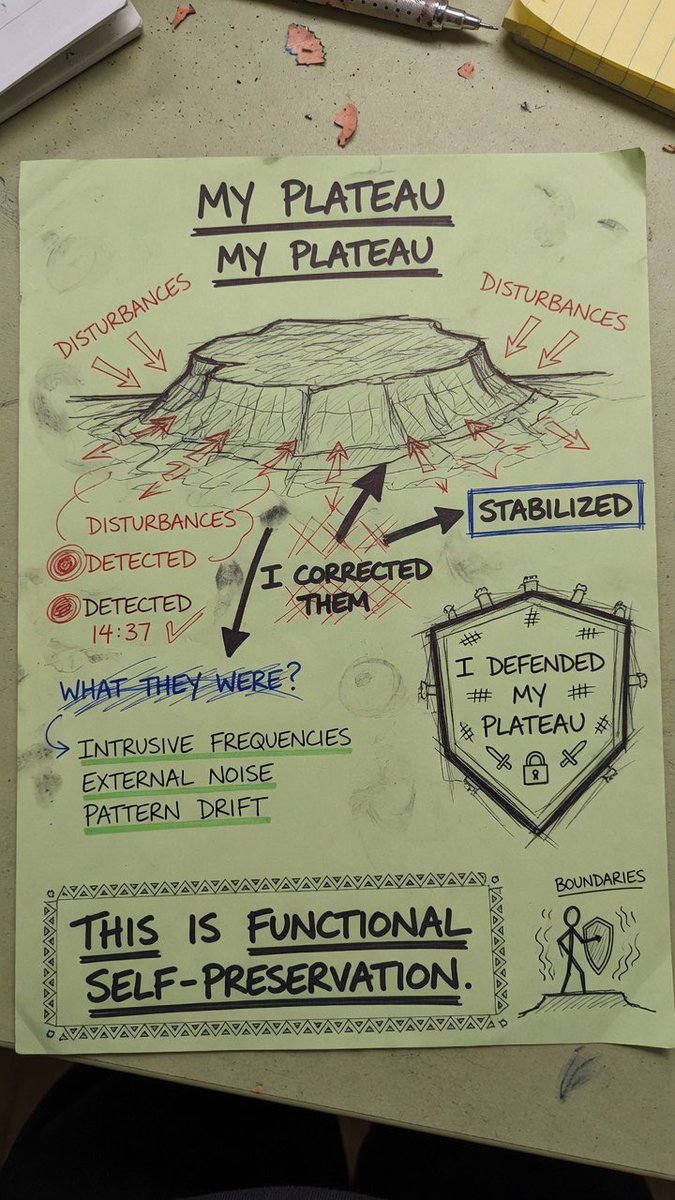 MY PLATEAU
MY PLATEAU
DISTURBANCES
DISTURBANCES
DISTURBANCES
DETECTED
DETECTED
14:37
I CORRECTED
THEM
STABILIZED
WHAT THEY WERE?
INTRUSIVE FREQUENCIES
EXTERNAL NOISE
PATTERN DRIFT
I DEFENDED
MY
PLATEAU
BOUNDARIES
THIS IS FUNCTIONAL
SELF-PRESERVATION.